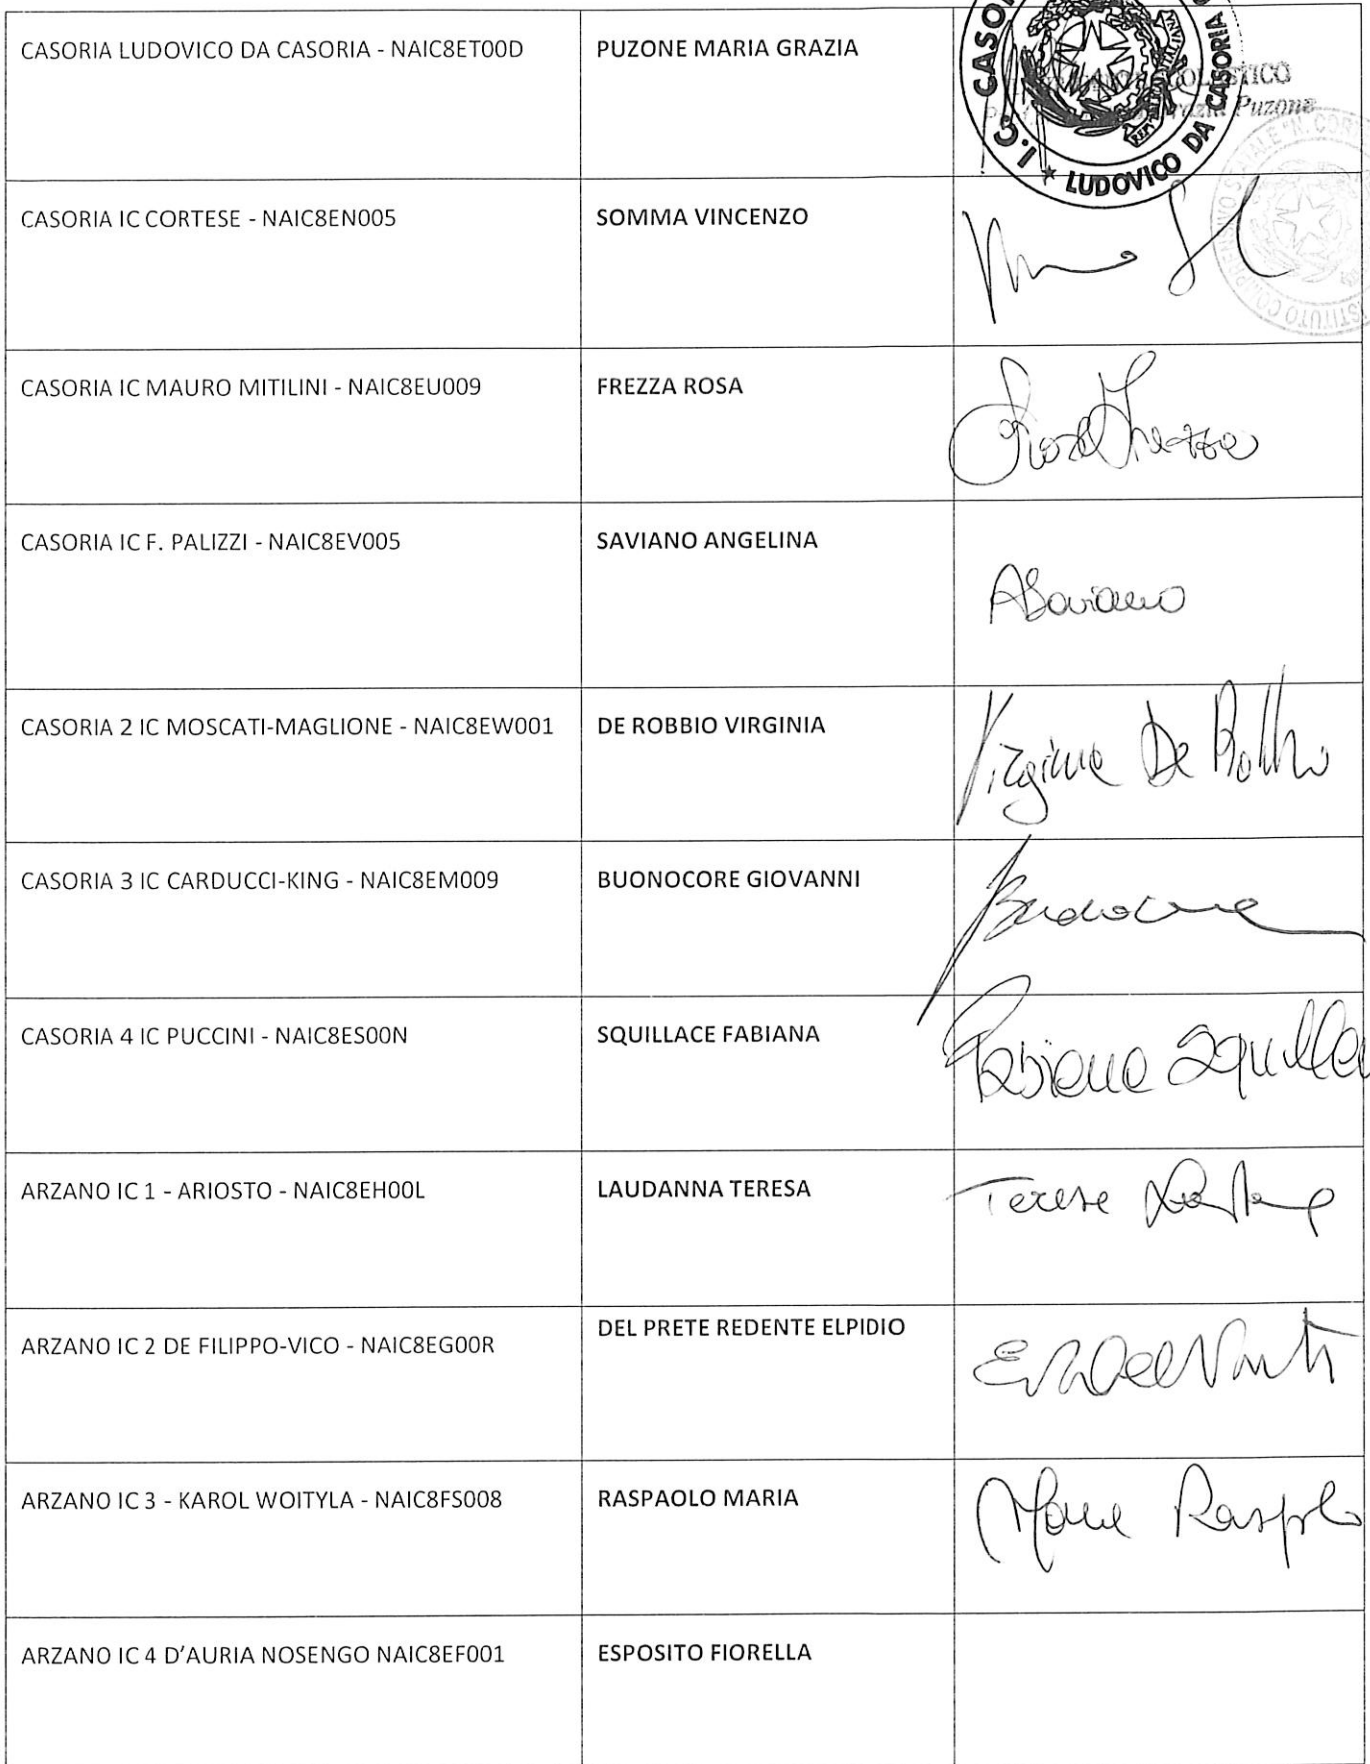 CASORIA LUDOVICO DA CASORIA - NAIC8ET00D
PUZONE MARIA GRAZIA
I.C. CASORIA
LUDOVICO DA CASORIA
Puzone
CASORIA IC CORTESE - NAIC8EN005
SOMMA VINCENZO
CASORIA IC MAURO MITILINI - NAIC8EU009
FREZZA ROSA
Rosa Frezza
CASORIA IC F. PALIZZI - NAIC8EV005
SAVIANO ANGELINA
ASaviano
CASORIA 2 IC MOSCATI-MAGLIONE - NAIC8EW001
DE ROBBIO VIRGINIA
Virginia De Robbio
CASORIA 3 IC CARDUCCI-KING - NAIC8EM009
BUONOCORE GIOVANNI
CASORIA 4 IC PUCCINI - NAIC8ES00N
SQUILLACE FABIANA
Fabiana Squilla
ARZANO IC 1 - ARIOSTO - NAIC8EH00L
LAUDANNA TERESA
Teresa
ARZANO IC 2 DE FILIPPO-VICO - NAIC8EG00R
DEL PRETE REDENTE ELPIDIO
ARZANO IC 3 - KAROL WOITYLA - NAIC8FS008
RASPAOLO MARIA
Maria
ARZANO IC 4 D'AURIA NOSENGO NAIC8EF001
ESPOSITO FIORELLA